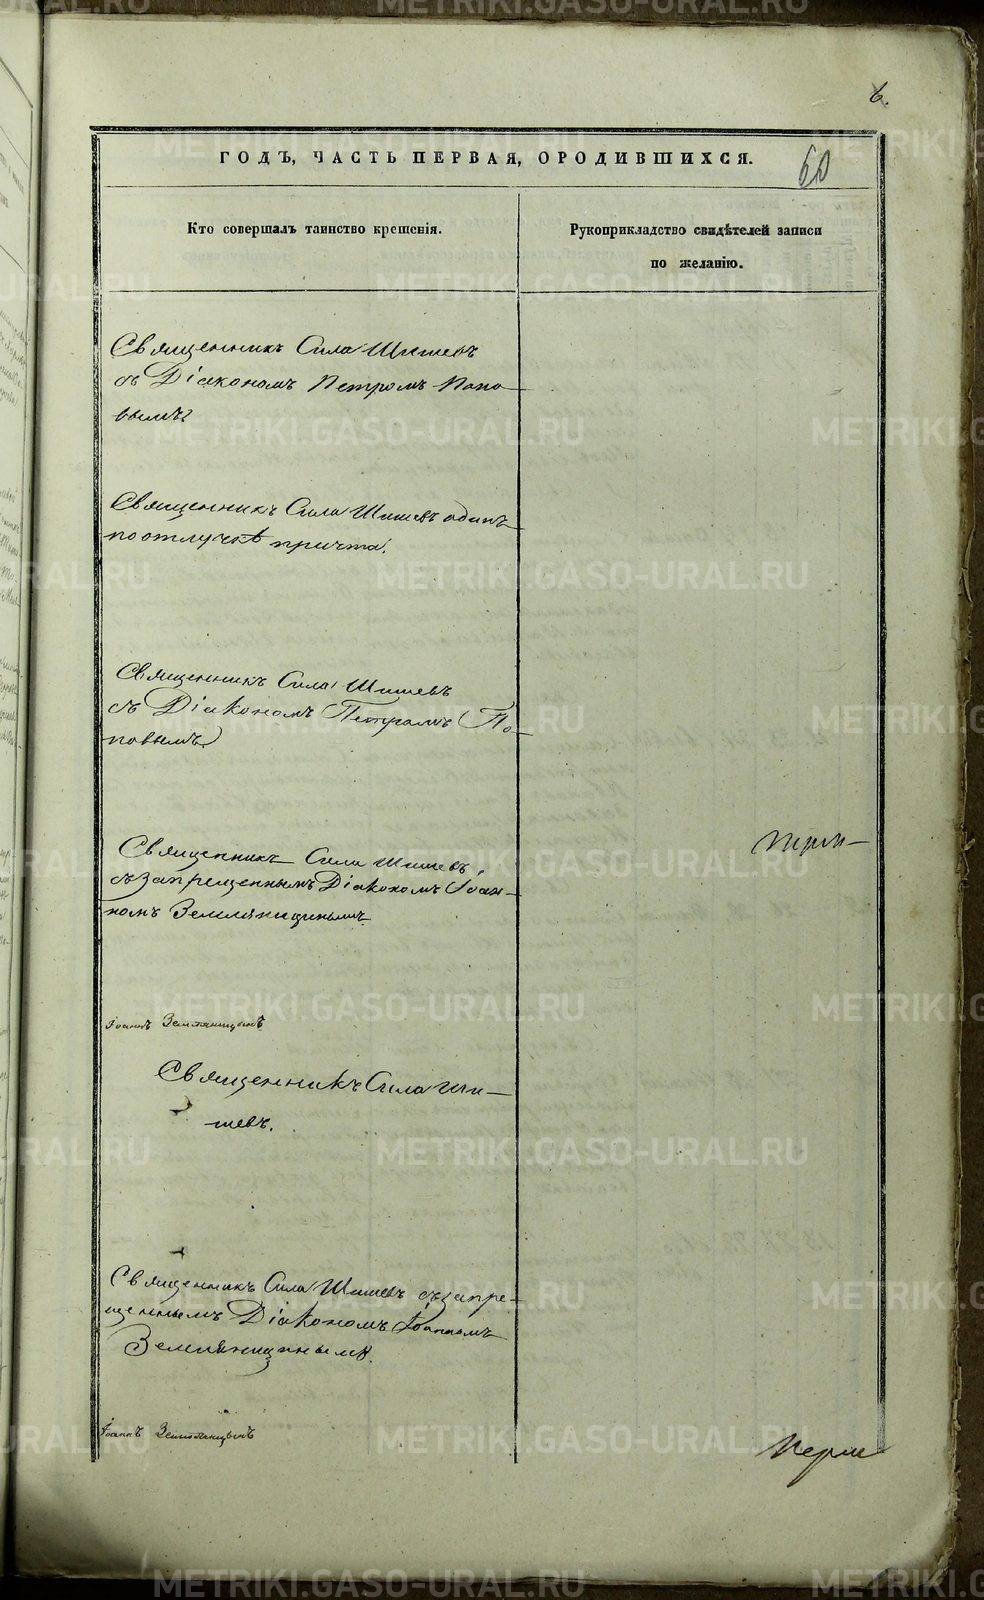 6.
ГОДЪ, ЧАСТЬ ПЕРВАЯ, ОРОДИВШИХСЯ.
60
Кто совершалъ таинство крещенія.
Рукоприкладство свидѣтелей записи
по желанію.
Священникъ Сила Шишевъ
съ Діакономъ Петромъ Попо-
вымъ
Священникъ Сила Шишевъ одинъ
по отлучкѣ причта.
Священникъ Сила Шишевъ
съ Діакономъ Петромъ По-
повымъ
Священникъ Сила Шишевъ
съ запрещеннымъ Діакономъ Іоан-
номъ Земляницинымъ.
Іоаннъ Земляницынъ
Священникъ Сила Ши-
шевъ.
Священникъ Сила Шишевъ съ запре-
щеннымъ Діакономъ Іоанномъ
Земляницинымъ.
Іоаннъ Земляницынъ
METRIKI.GASO-URAL.RU